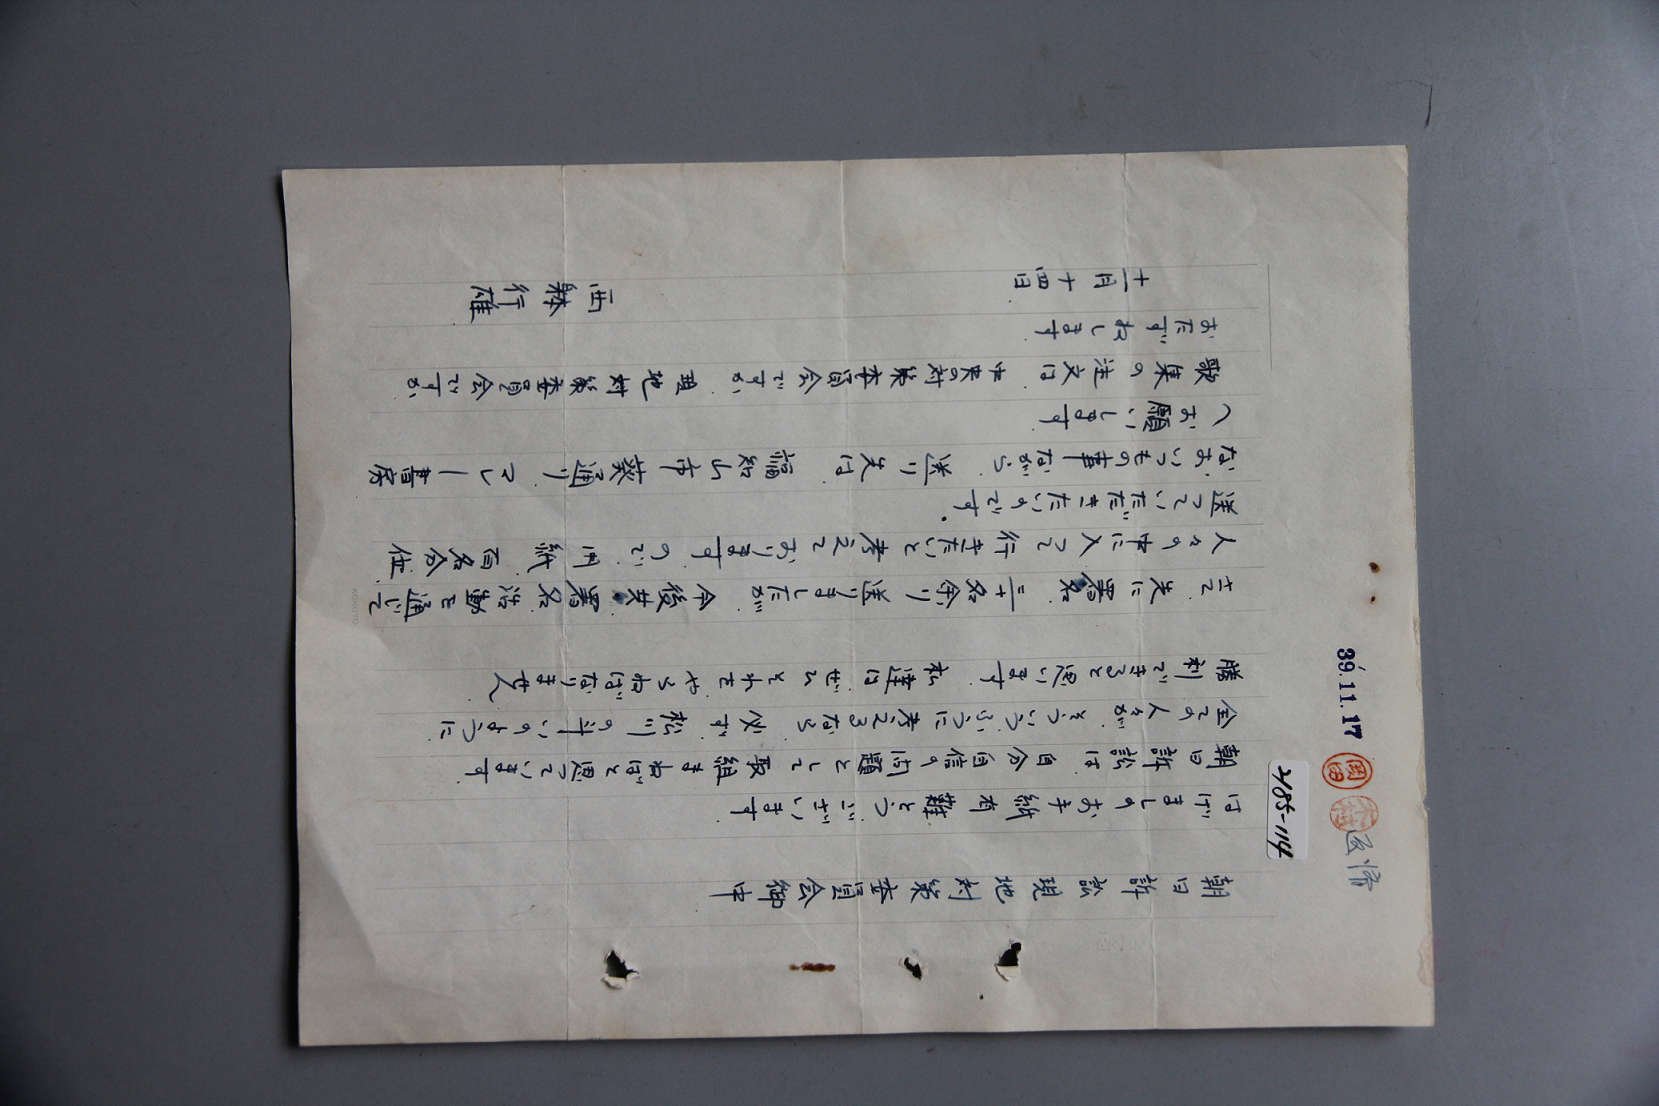 朝日訴訟現地対策委員会御中
はげましのお手紙有難とうございます。
朝日訴訟は、自分自信の問題として取組まねばと思っています。
全ての人々が、そういうふうに考えるなら、必ず、松川の斗いのように、
勝利できると思います。私達はぜひそれをやらねばなりません
さて、先に署名、二十名余り送りましたが、今後共、署名活動を通じて
人々の中に入って行きたいと考えておりますので、用紙、百名分位、
送っていただきたいのです。
なお、いつもの事ながら、送り先は福知山市葵通り、マレー書房
へお願いします。
歌集の注文は、中央の対策委員会ですか、現地対策委員会ですか、
おたずねします。
十一月十四日
西躰行雄
39.11.17
2185-114